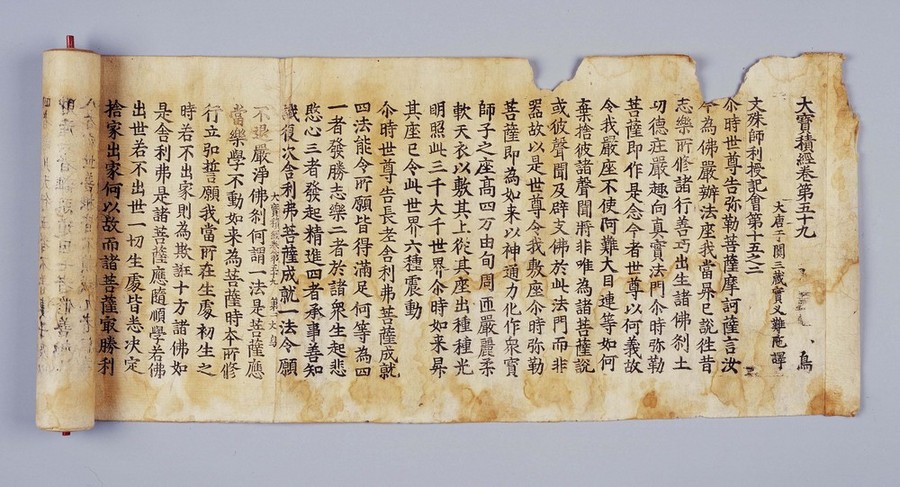 大寶積經卷第五十九 鳥
大唐于闐三藏實叉難陁譯
文殊師利授記會第十五之二
尒時世尊告弥勒菩薩摩訶薩言汝
今為佛嚴辦法座我當昇已說往昔
志樂所修諸行善巧出生諸佛刹土
功德莊嚴趣向真實法門尒時弥勒
菩薩即作是念今者世尊以何義故
令我嚴座不使阿難大目連等如何
棄捨彼諸聲聞將非唯為諸菩薩說
或彼聲聞及辟支佛於此法門而非
器故以是世尊令我敷座尒時弥勒
菩薩即為如來以神通力化作衆寶
師子之座高四万由旬周匝嚴麗柔
軟天衣以敷其上從其座出種種光
明照此三千大千世界尒時如來昇
其座已令此世界六種震動
尒時世尊告長老舍利弗菩薩成就
四法能令所願皆得滿足何等為四
一者發勝志樂二者於諸衆生起悲
愍心三者發起精進四者承事善知
識復次舍利弗菩薩成就一法令願
大寶積經卷第五十九 第二丈 鳥
不退嚴淨佛刹何謂一法是菩薩應
當樂學不動如來為菩薩時本所修
行立弘誓願我當所在生處初生之
時若不出家則為欺誑十方諸佛如
是舍利弗是諸菩薩應隨順學若佛
出世若不出世一切生處皆悉決定
捨家出家何以故而諸菩薩冣勝利